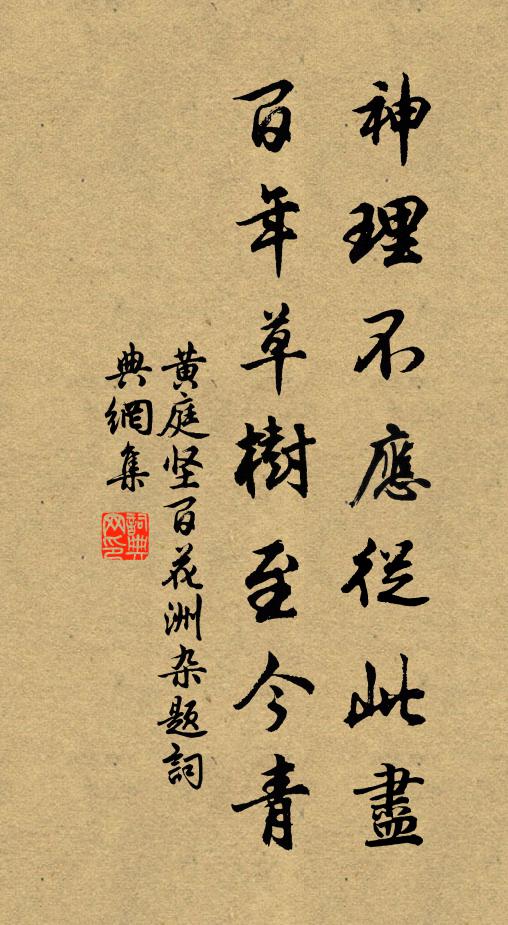 神理不應從此盡
百年草樹至今青
黄庭坚百花洲杂题詞
典網集
詞典
网印